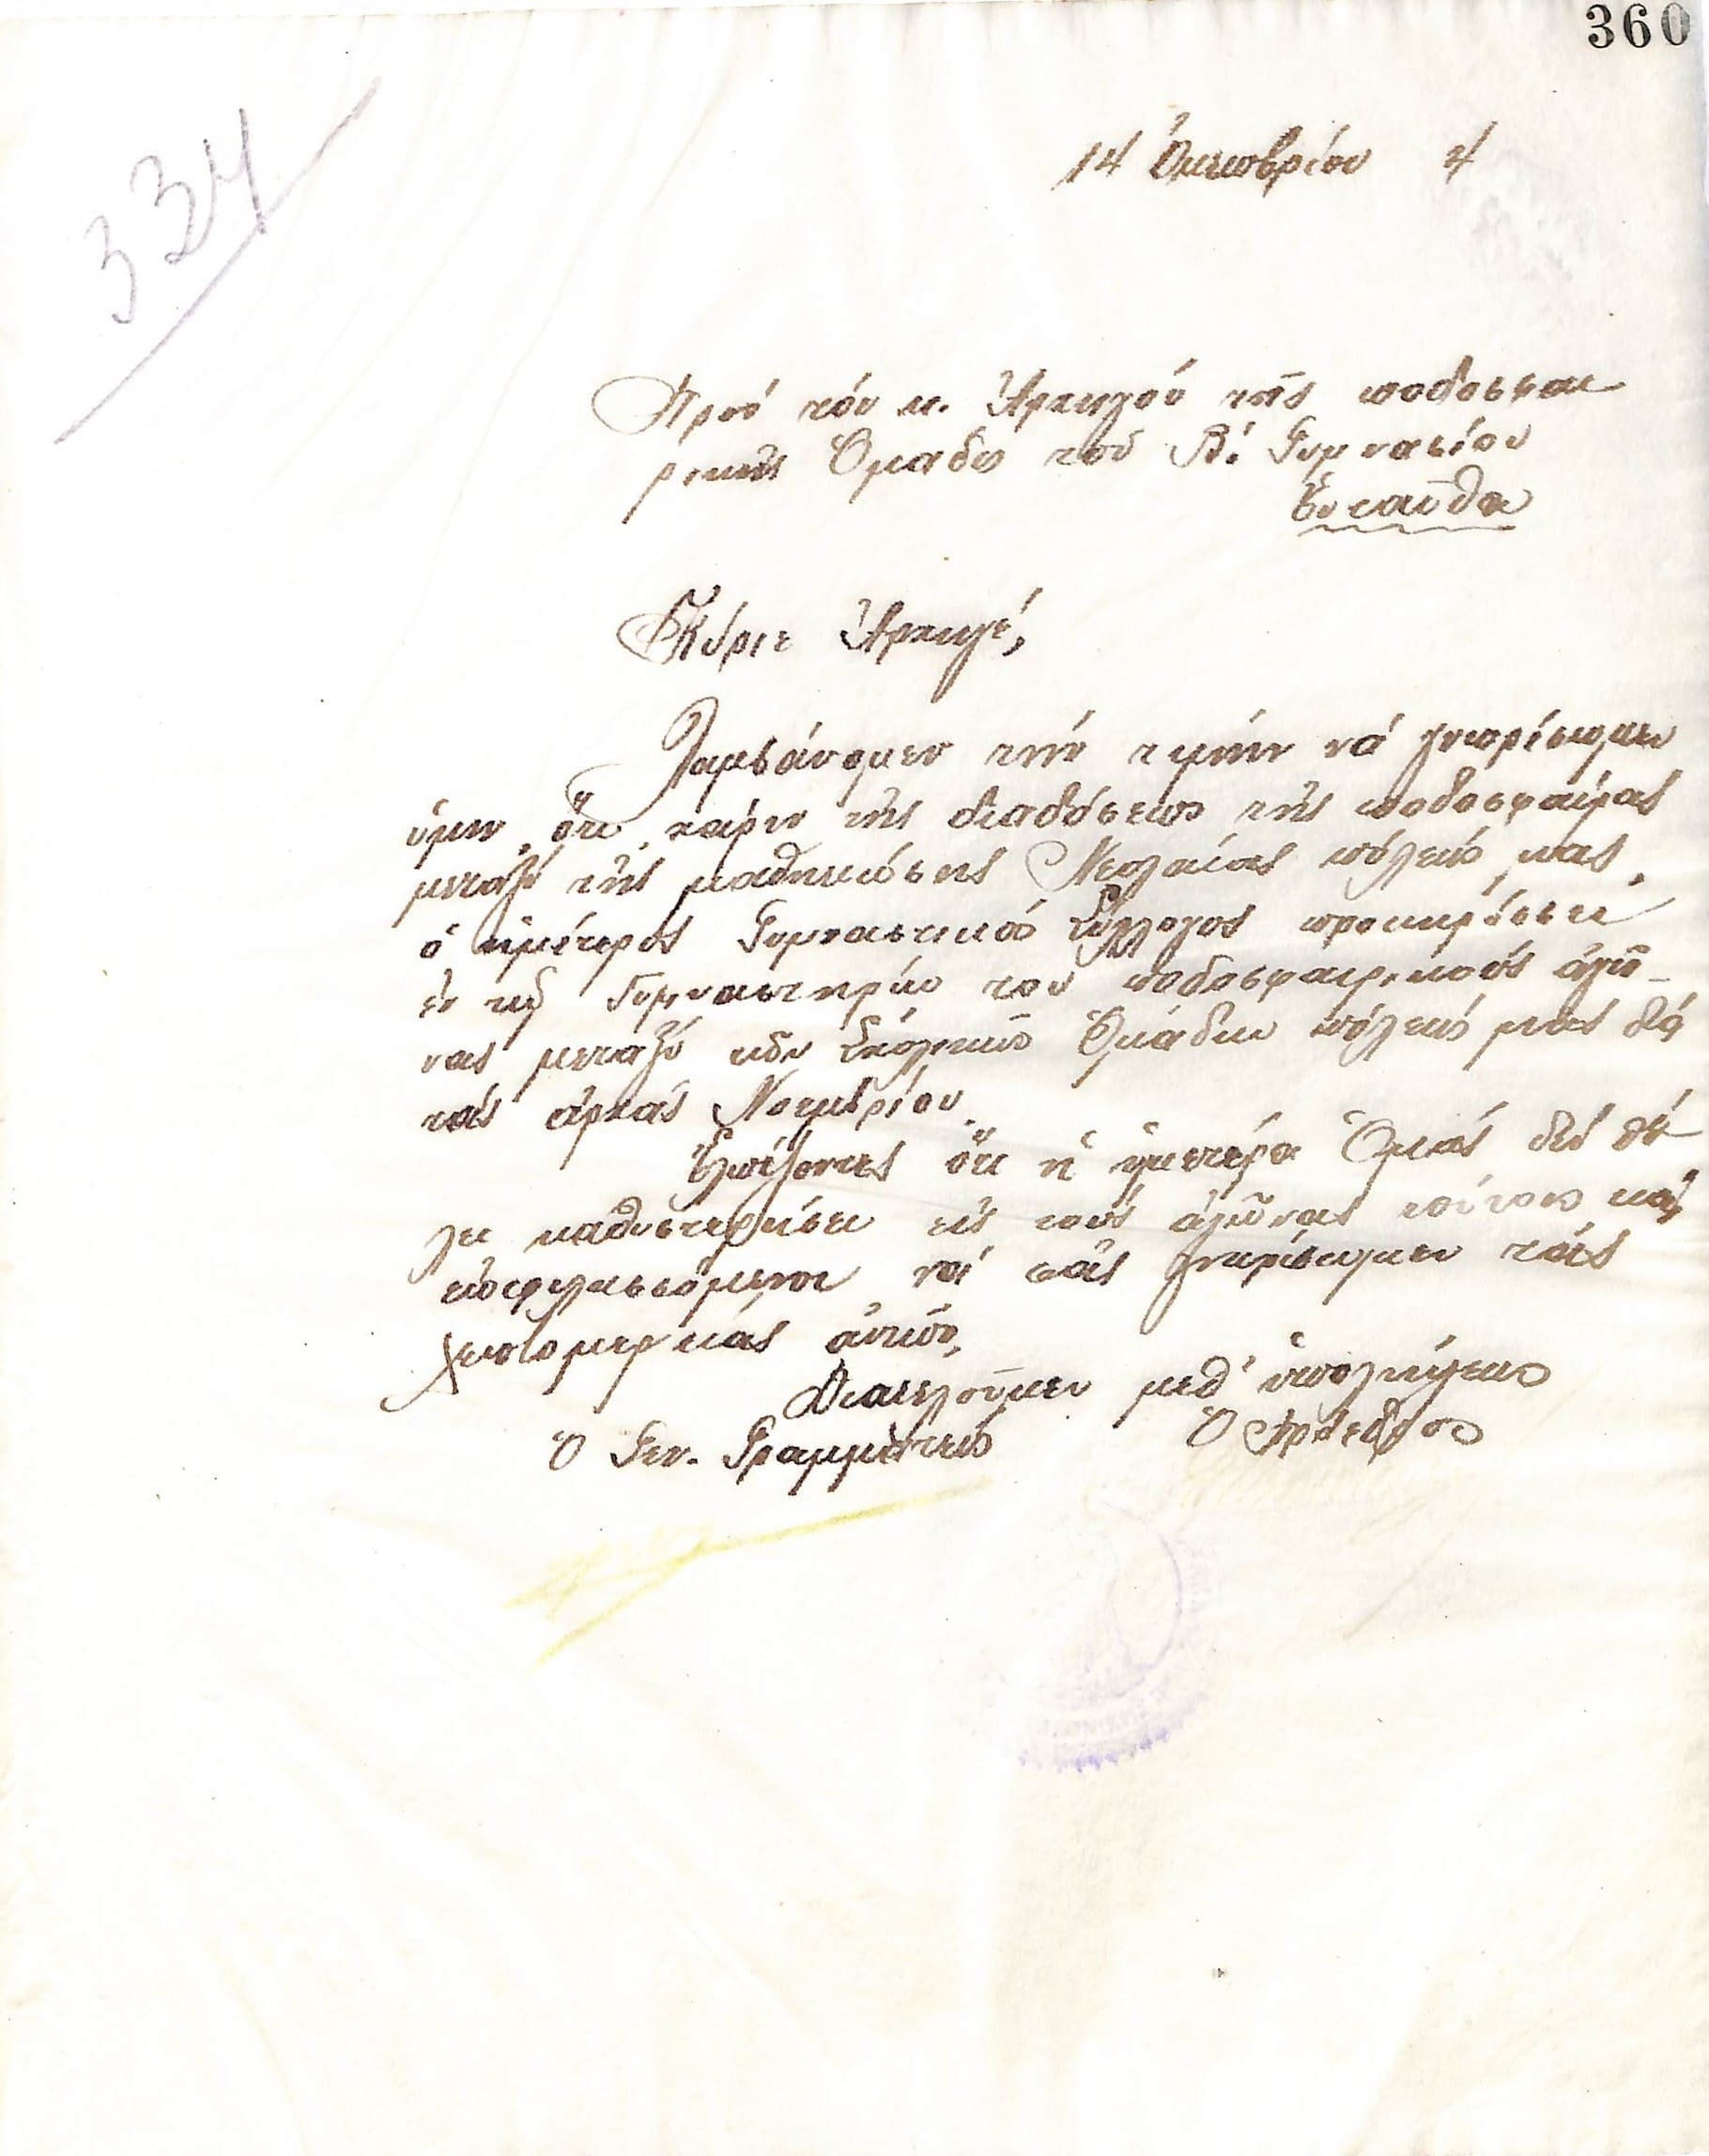 360
334
14 Ὀκτωβρίου 4
Πρὸς τόν κ. Ἀρχηγόν τῆς ποδοσφαι
ρικῆς Ὁμάδος τοῦ Β′. Γυμνασίου
Ἐνταῦθα
Κύριε Ἀρχηγέ,
Λαμβάνομεν τήν τιμήν νά γνωρίσωμεν
ὑμῖν, ὅτι χάριν τῆς διαδόσεως τῆς ποδοσφαίρας
μεταξύ τῆς μαθητιώσης Νεολαίας πόλεώς μας,
ὁ ἡμέτερος Γυμναστικός Σύλλογος προκηρύσσει
ἐν τῷ Γυμναστηρίῳ του ποδοσφαιρικούς ἀγῶ-
νας μεταξύ τῶν Σχολικῶν Ὁμάδων πόλεώς μας διά
τάς ἀρχάς Νοεμβρίου.
Ἐλπίζοντες ὅτι ἡ ὑμετέρα Ὁμάς δέν θέ
λει καθυστερήσει εἰς τούς ἀγῶνας τούτους καί
ἐπιφυλασσόμενοι νά σᾶς γνωρίσωμεν τάς
λεπτομερείας αὐτῶν,
Διατελοῦμεν μεθ' ὑπολήψεως
Ὁ Γεν. Γραμματεύς Ὁ Πρόεδρος